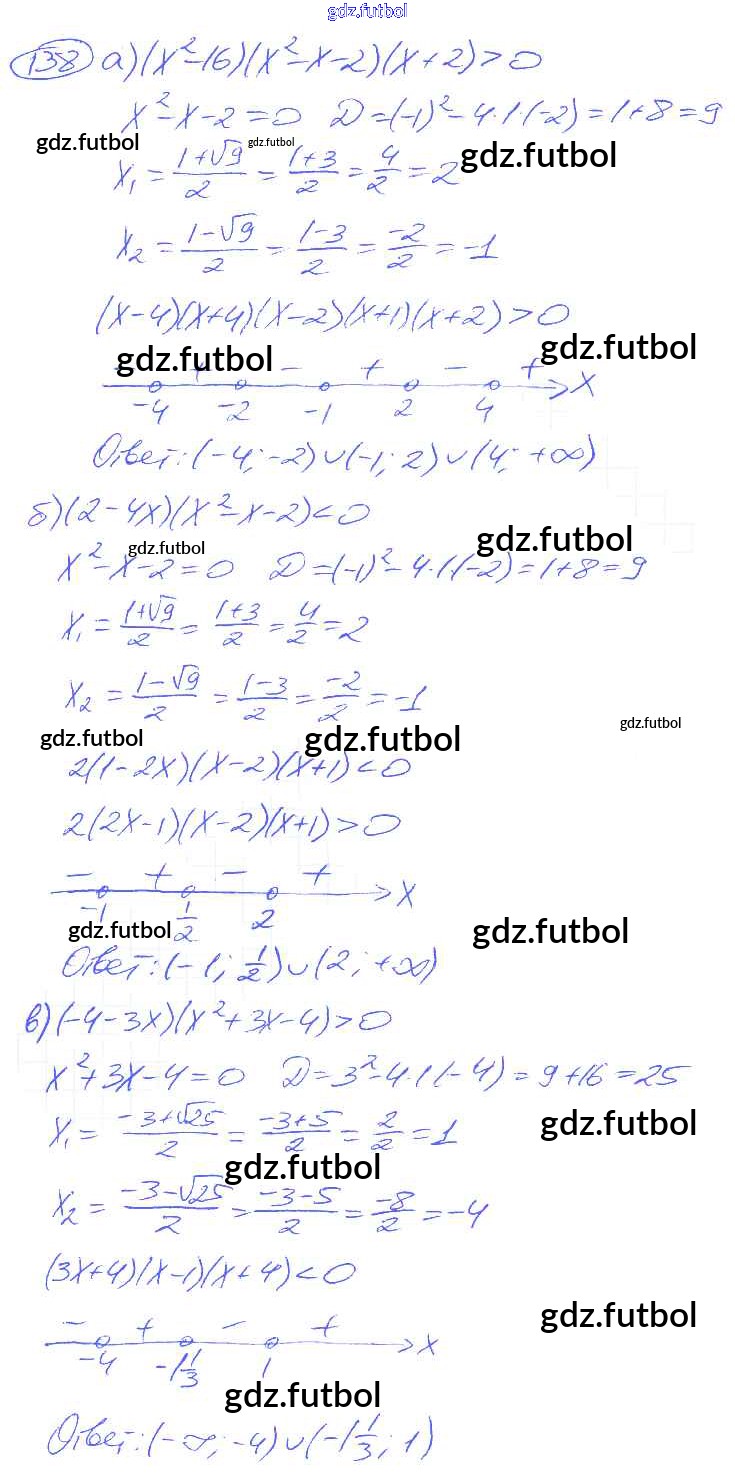 gdz.futbol
138 а) (x²-16)(x²-x-2)(x+2)>0
x²-x-2=0 D=(-1)²-4·1·(-2)=1+8=9
gdz.futbol gdz.futbol gdz.futbol
x₁ = (1+√9)/2 = (1+3)/2 = 4/2 = 2
x₂ = (1-√9)/2 = (1-3)/2 = -2/2 = -1
(x-4)(x+4)(x-2)(x+1)(x+2)>0
gdz.futbol gdz.futbol
+ - + - + x
-4 -2 -1 2 4
Ответ: (-4; -2)∪(-1; 2)∪(4; +∞)
б) (2-4x)(x²-x-2)<0
gdz.futbol gdz.futbol
x²-x-2=0 D=(-1)²-4·1·(-2)=1+8=9
x₁ = (1+√9)/2 = (1+3)/2 = 4/2 = 2
x₂ = (1-√9)/2 = (1-3)/2 = -2/2 = -1
gdz.futbol gdz.futbol gdz.futbol
2(1-2x)(x-2)(x+1)<0
2(2x-1)(x-2)(x+1)>0
- + - + x
-1 1/2 2
gdz.futbol gdz.futbol
Ответ: (-1; 1/2)∪(2; +∞)
в) (-4-3x)(x²+3x-4)>0
x²+3x-4=0 D=3²-4·1·(-4)=9+16=25
gdz.futbol
x₁ = (-3+√25)/2 = (-3+5)/2 = 2/2 = 1
gdz.futbol
x₂ = (-3-√25)/2 = (-3-5)/2 = -8/2 = -4
(3x+4)(x-1)(x+4)<0
gdz.futbol
- + - + x
-4 -1 1/3 1
gdz.futbol
Ответ: (-∞; -4)∪(-1 1/3; 1)